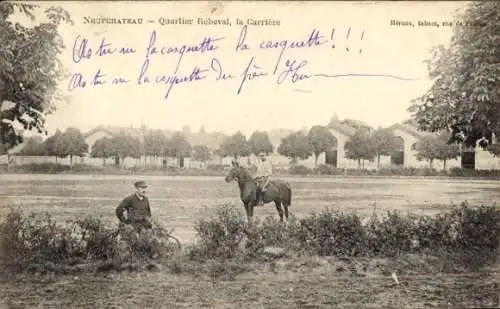 NEUFCHATEAU — Quartier Rébeval, la Carrière
Héraux, tabacs, rue de France
As tu vu la casquette, la casquette!!!
As tu vu la casquette du père